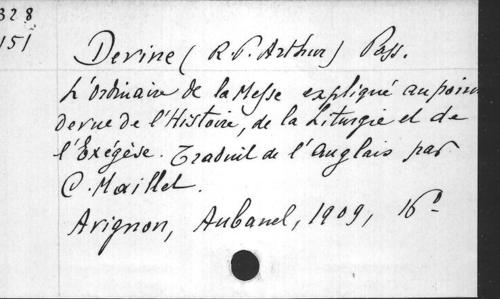 328
151
Devine (R.P. Arthur) Pass.
L'Ordinaire de la Messe expliqué au point
de vue de l'Histoire, de la Liturgie et de
l'Exégèse. Traduit de l'Anglais par
C. Maillet.
Avignon, Aubanel, 1909, 16º